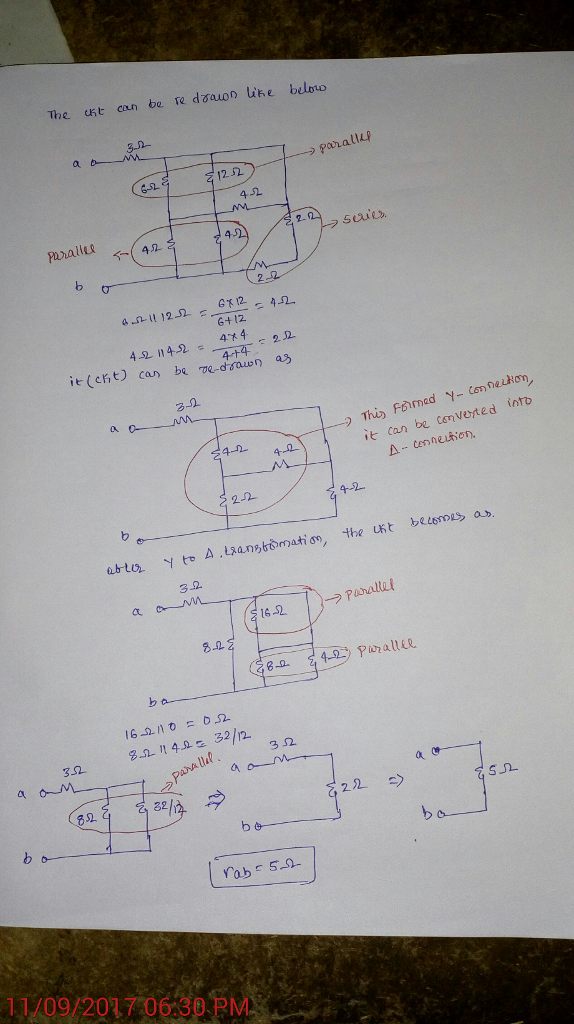 The ckt can be re drawn like below
3Ω
a
parallel
6Ω
12Ω
4Ω
2Ω
series.
parallel
4Ω
4Ω
2Ω
b
6Ω || 12Ω = 6×12 / 6+12 = 4Ω
4Ω || 4Ω = 4×4 / 4+4 = 2Ω
it (ckt) can be re-drawn as
3Ω
a
This Formed Y-connection,
it can be converted into
Δ-connection.
4Ω
4Ω
2Ω
4Ω
b
after Y to Δ. transformation, the ckt becomes as.
3Ω
a
parallel
16Ω
8Ω
8Ω
4Ω
parallel
b
16Ω || 0 = 0Ω
8Ω || 4Ω = 32/12
parallel.
3Ω
a
8Ω
32/12
b
⇒
3Ω
a
2Ω
b
⇒
a
5Ω
b
rab = 5Ω
11/09/2017 06:30 PM